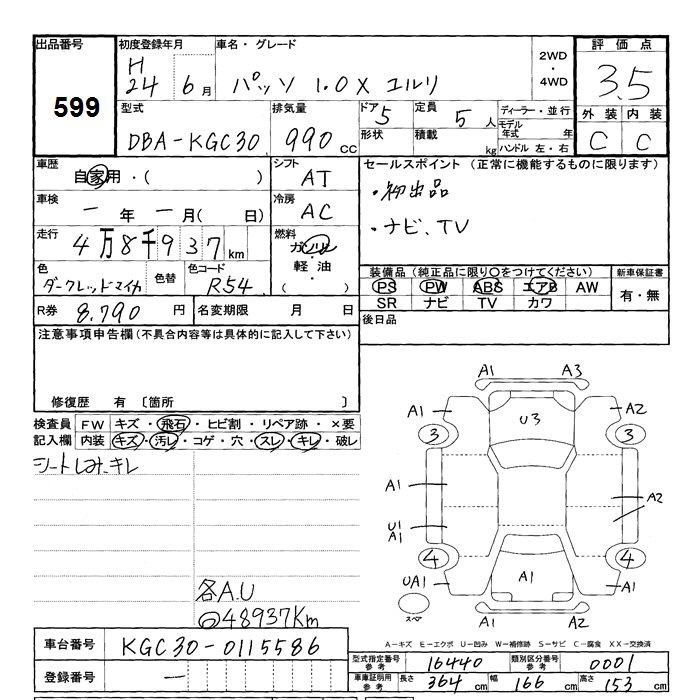 出品番号 初度登録年月 車名・グレード 2WD ・ 4WD 評価点
599 H 24 6月 パッソ 1.0X ユルリ 3.5
型式 排気量 ドア 5 定員 5人 ディーラー・並行 外装 内装
DBA-KGC30 990cc 形状 積載 kg モデル年式 年 ハンドル 左・右 C C
車歴 自家用・( ) シフト AT セールスポイント (正常に機能するものに限ります)
車検 ー年ー月( 日) 冷房 AC ・初出品
走行 4万8千937km 燃料 ガソリン ・ナビ、TV
軽油
色 ダークレッドマイカ 色替 色コード R54 装備品(純正品に限り○をつけてください) 新車保証書
PS PW ABS エアB AW 有・無
SR ナビ TV カワ
R券 8,790円 名変期限 月 日 後日品
注意事項申告欄(不具合内容等は具体的に記入して下さい)
修復歴 有 〔箇所 〕
検査員 FW キズ・飛石・ヒビ割・リペア跡・×要
記入欄 内装 キズ・汚レ・コゲ・穴・スレ・キレ・破レ
シートしみ、キレ
各A.U
48937Km
A1 A3
A1 U3 A2
3 3
A1 A2
U1
A1
4 4
UA1 A1 A1
スペア A1 A2
A-キズ E-エクボ U-凹み W-補修跡 S-サビ C-腐食 XX-交換済
車台番号 KGC30-0115586
型式指定番号 参考 16440 類別区分番号 参考 0001
登録番号 ー 車庫証明用 参考 長さ 364cm 幅 166cm 高さ 153cm